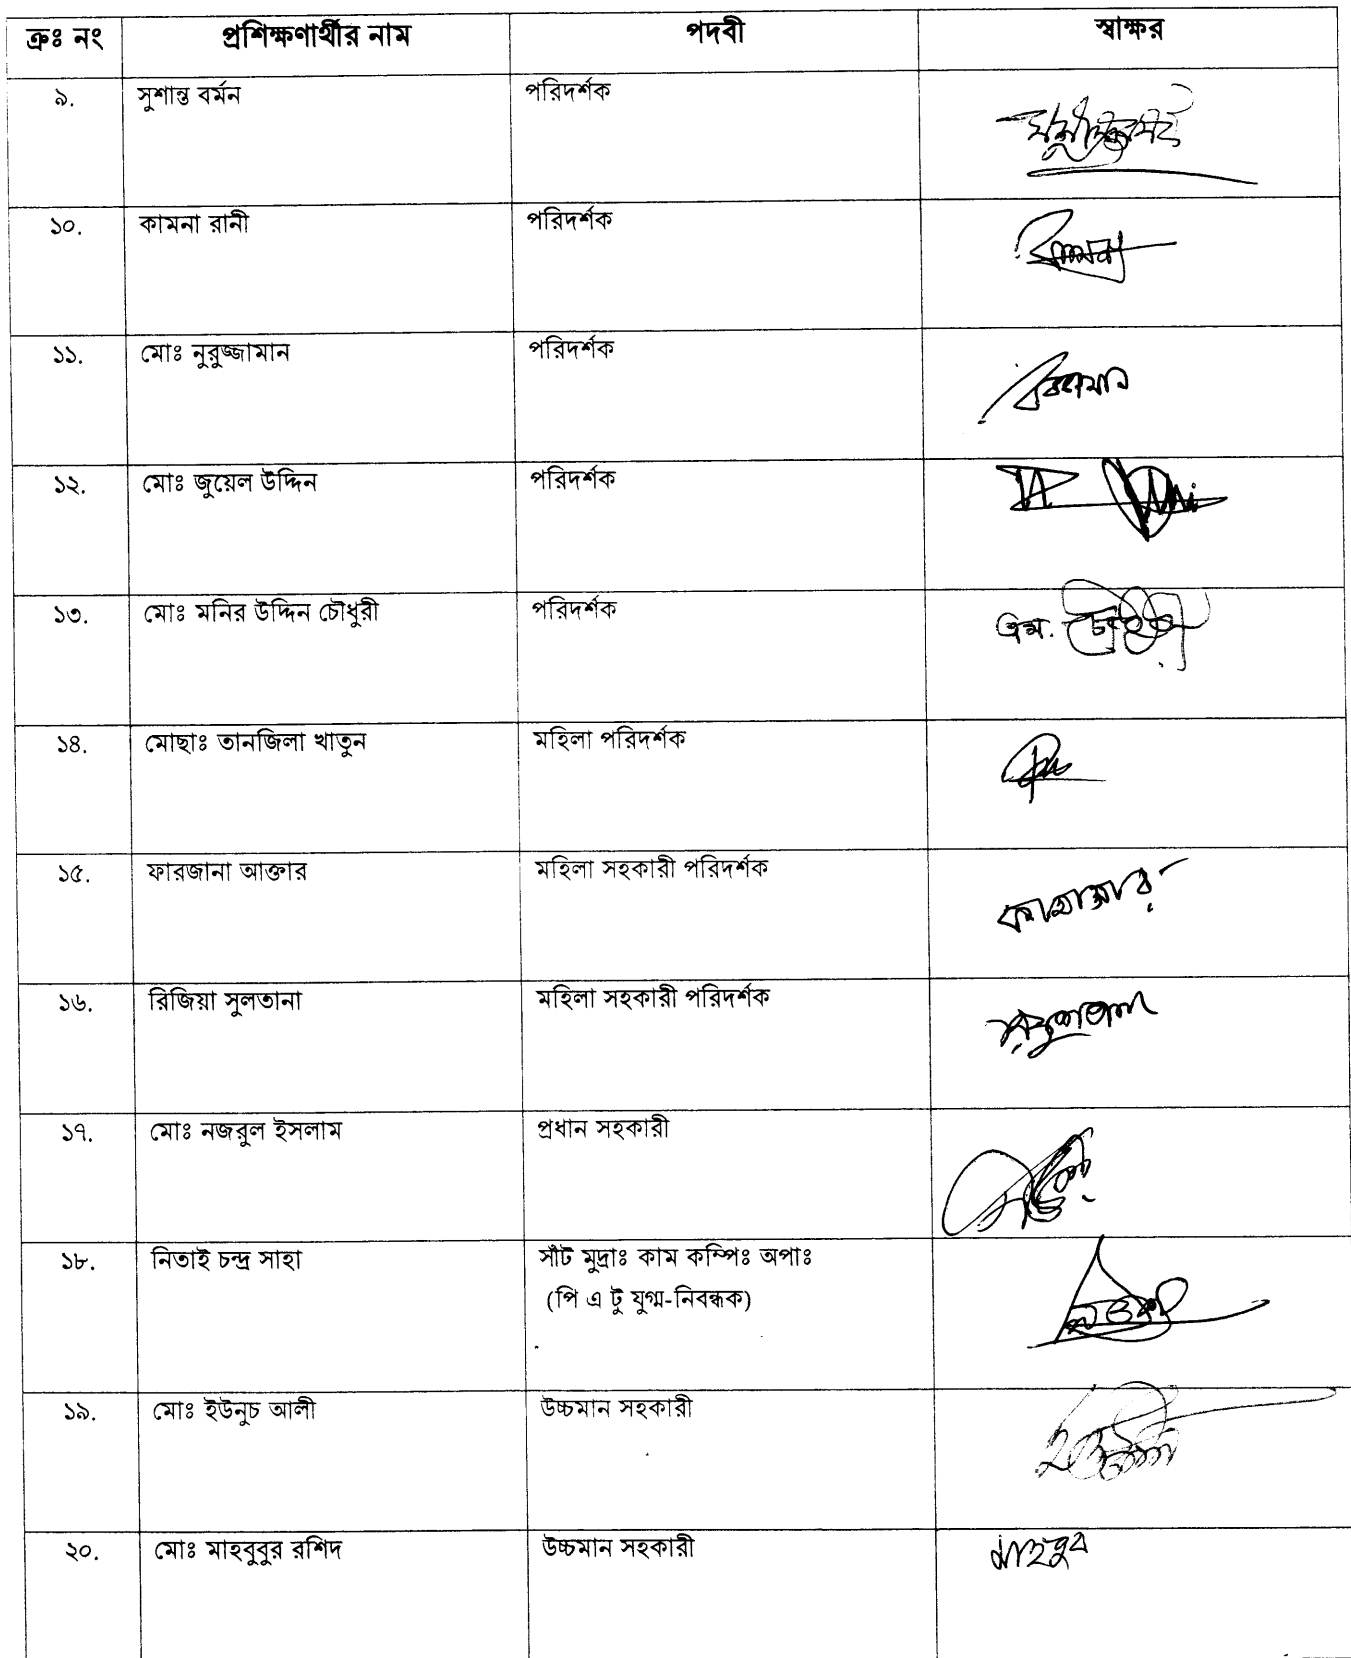 ক্রঃ নং প্রশিক্ষণার্থীর নাম পদবী স্বাক্ষর
৯. সুশান্ত বর্মন পরিদর্শক
১০. কামনা রানী পরিদর্শক
১১. মোঃ নুরুজ্জামান পরিদর্শক
১২. মোঃ জুয়েল উদ্দিন পরিদর্শক
১৩. মোঃ মনির উদ্দিন চৌধুরী পরিদর্শক
১৪. মোছাঃ তানজিলা খাতুন মহিলা পরিদর্শক
১৫. ফারজানা আক্তার মহিলা সহকারী পরিদর্শক
১৬. রিজিয়া সুলতানা মহিলা সহকারী পরিদর্শক
১৭. মোঃ নজরুল ইসলাম প্রধান সহকারী
১৮. নিতাই চন্দ্র সাহা সাঁট মুদ্রাঃ কাম কম্পিঃ অপাঃ
(পি এ টু যুগ্ম-নিবন্ধক)
১৯. মোঃ ইউনুচ আলী উচ্চমান সহকারী
২০. মোঃ মাহবুবুর রশিদ উচ্চমান সহকারী মাহবুব